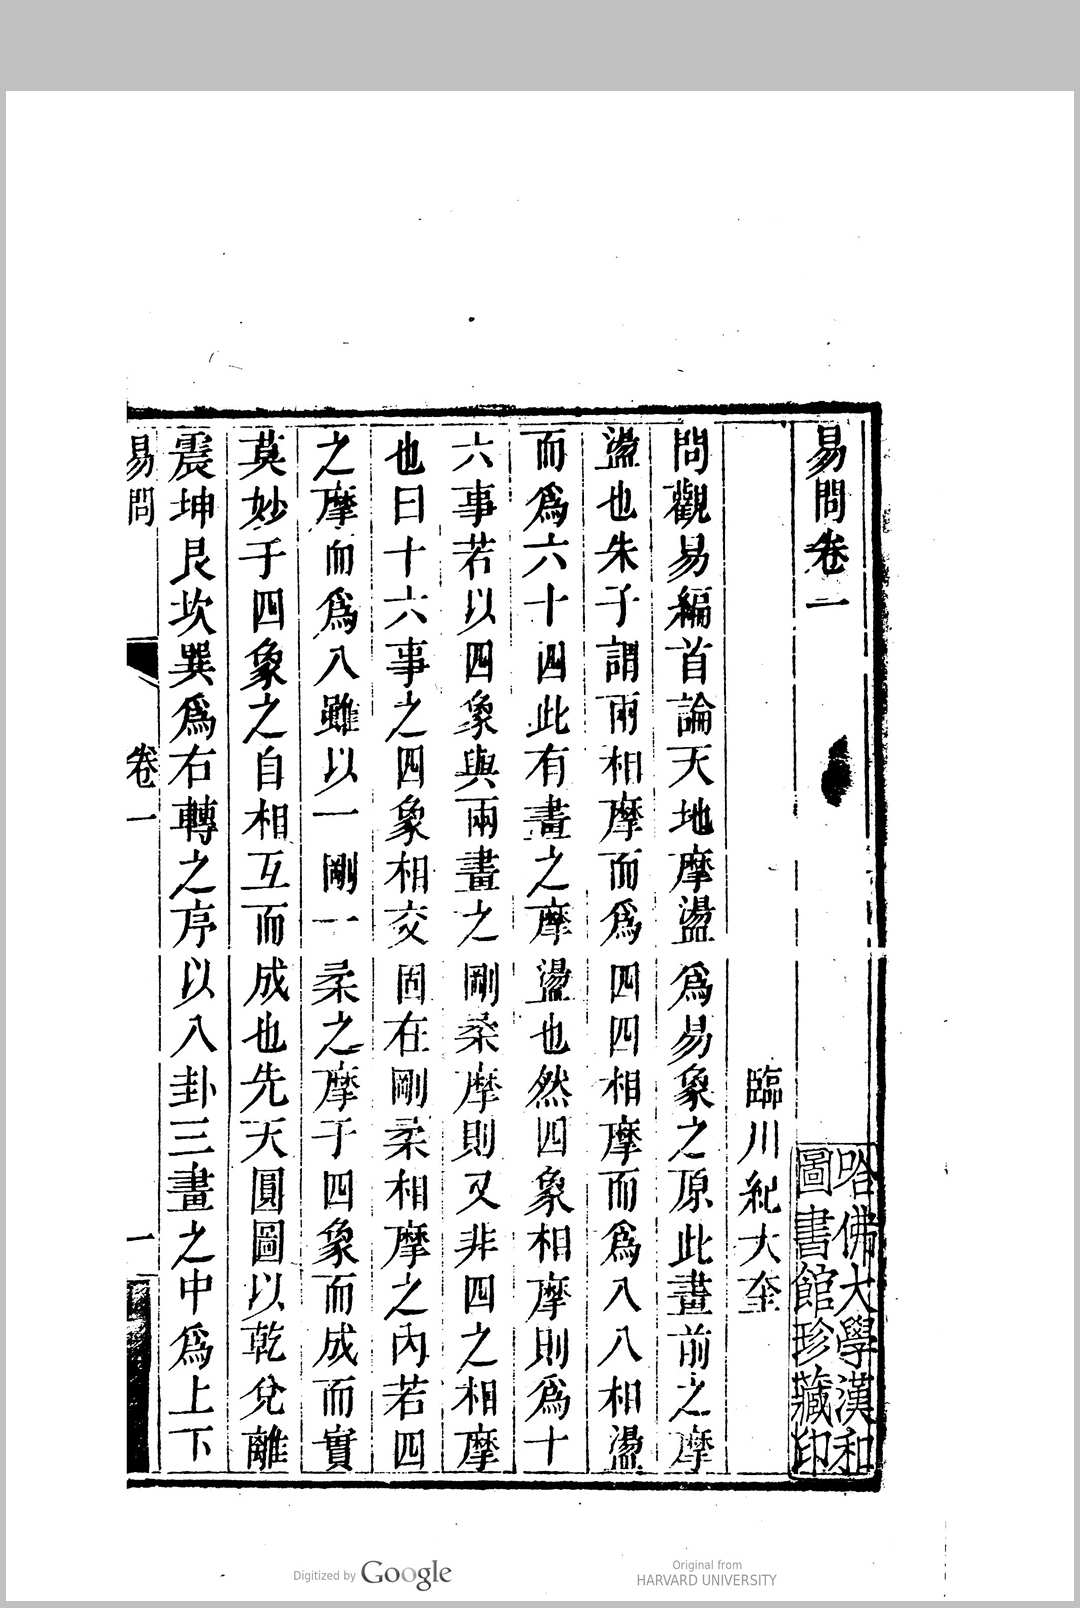 易問卷一
哈佛大學漢和
圖書館珍藏印
臨川紀大奎
問觀易編首論天地摩盪爲易象之原此畫前之摩
盪也朱子謂兩相摩而爲四四相摩而爲八八相盪
而爲六十四此有畫之摩盪也然四象相摩則爲十
六事若以四象與兩畫之剛柔摩則又非四之相摩
也曰十六事之四象相交固在剛柔相摩之內若四
之摩而爲八雖以一剛一柔之摩于四象而成而實
莫妙于四象之自相互而成也先天圓圖以乾兌離
震坤艮坎巽爲右轉之序以八卦三畫之中爲上下
易問
卷一
一
Digitized by Google
Original from
HARVARD UNIVERSITY